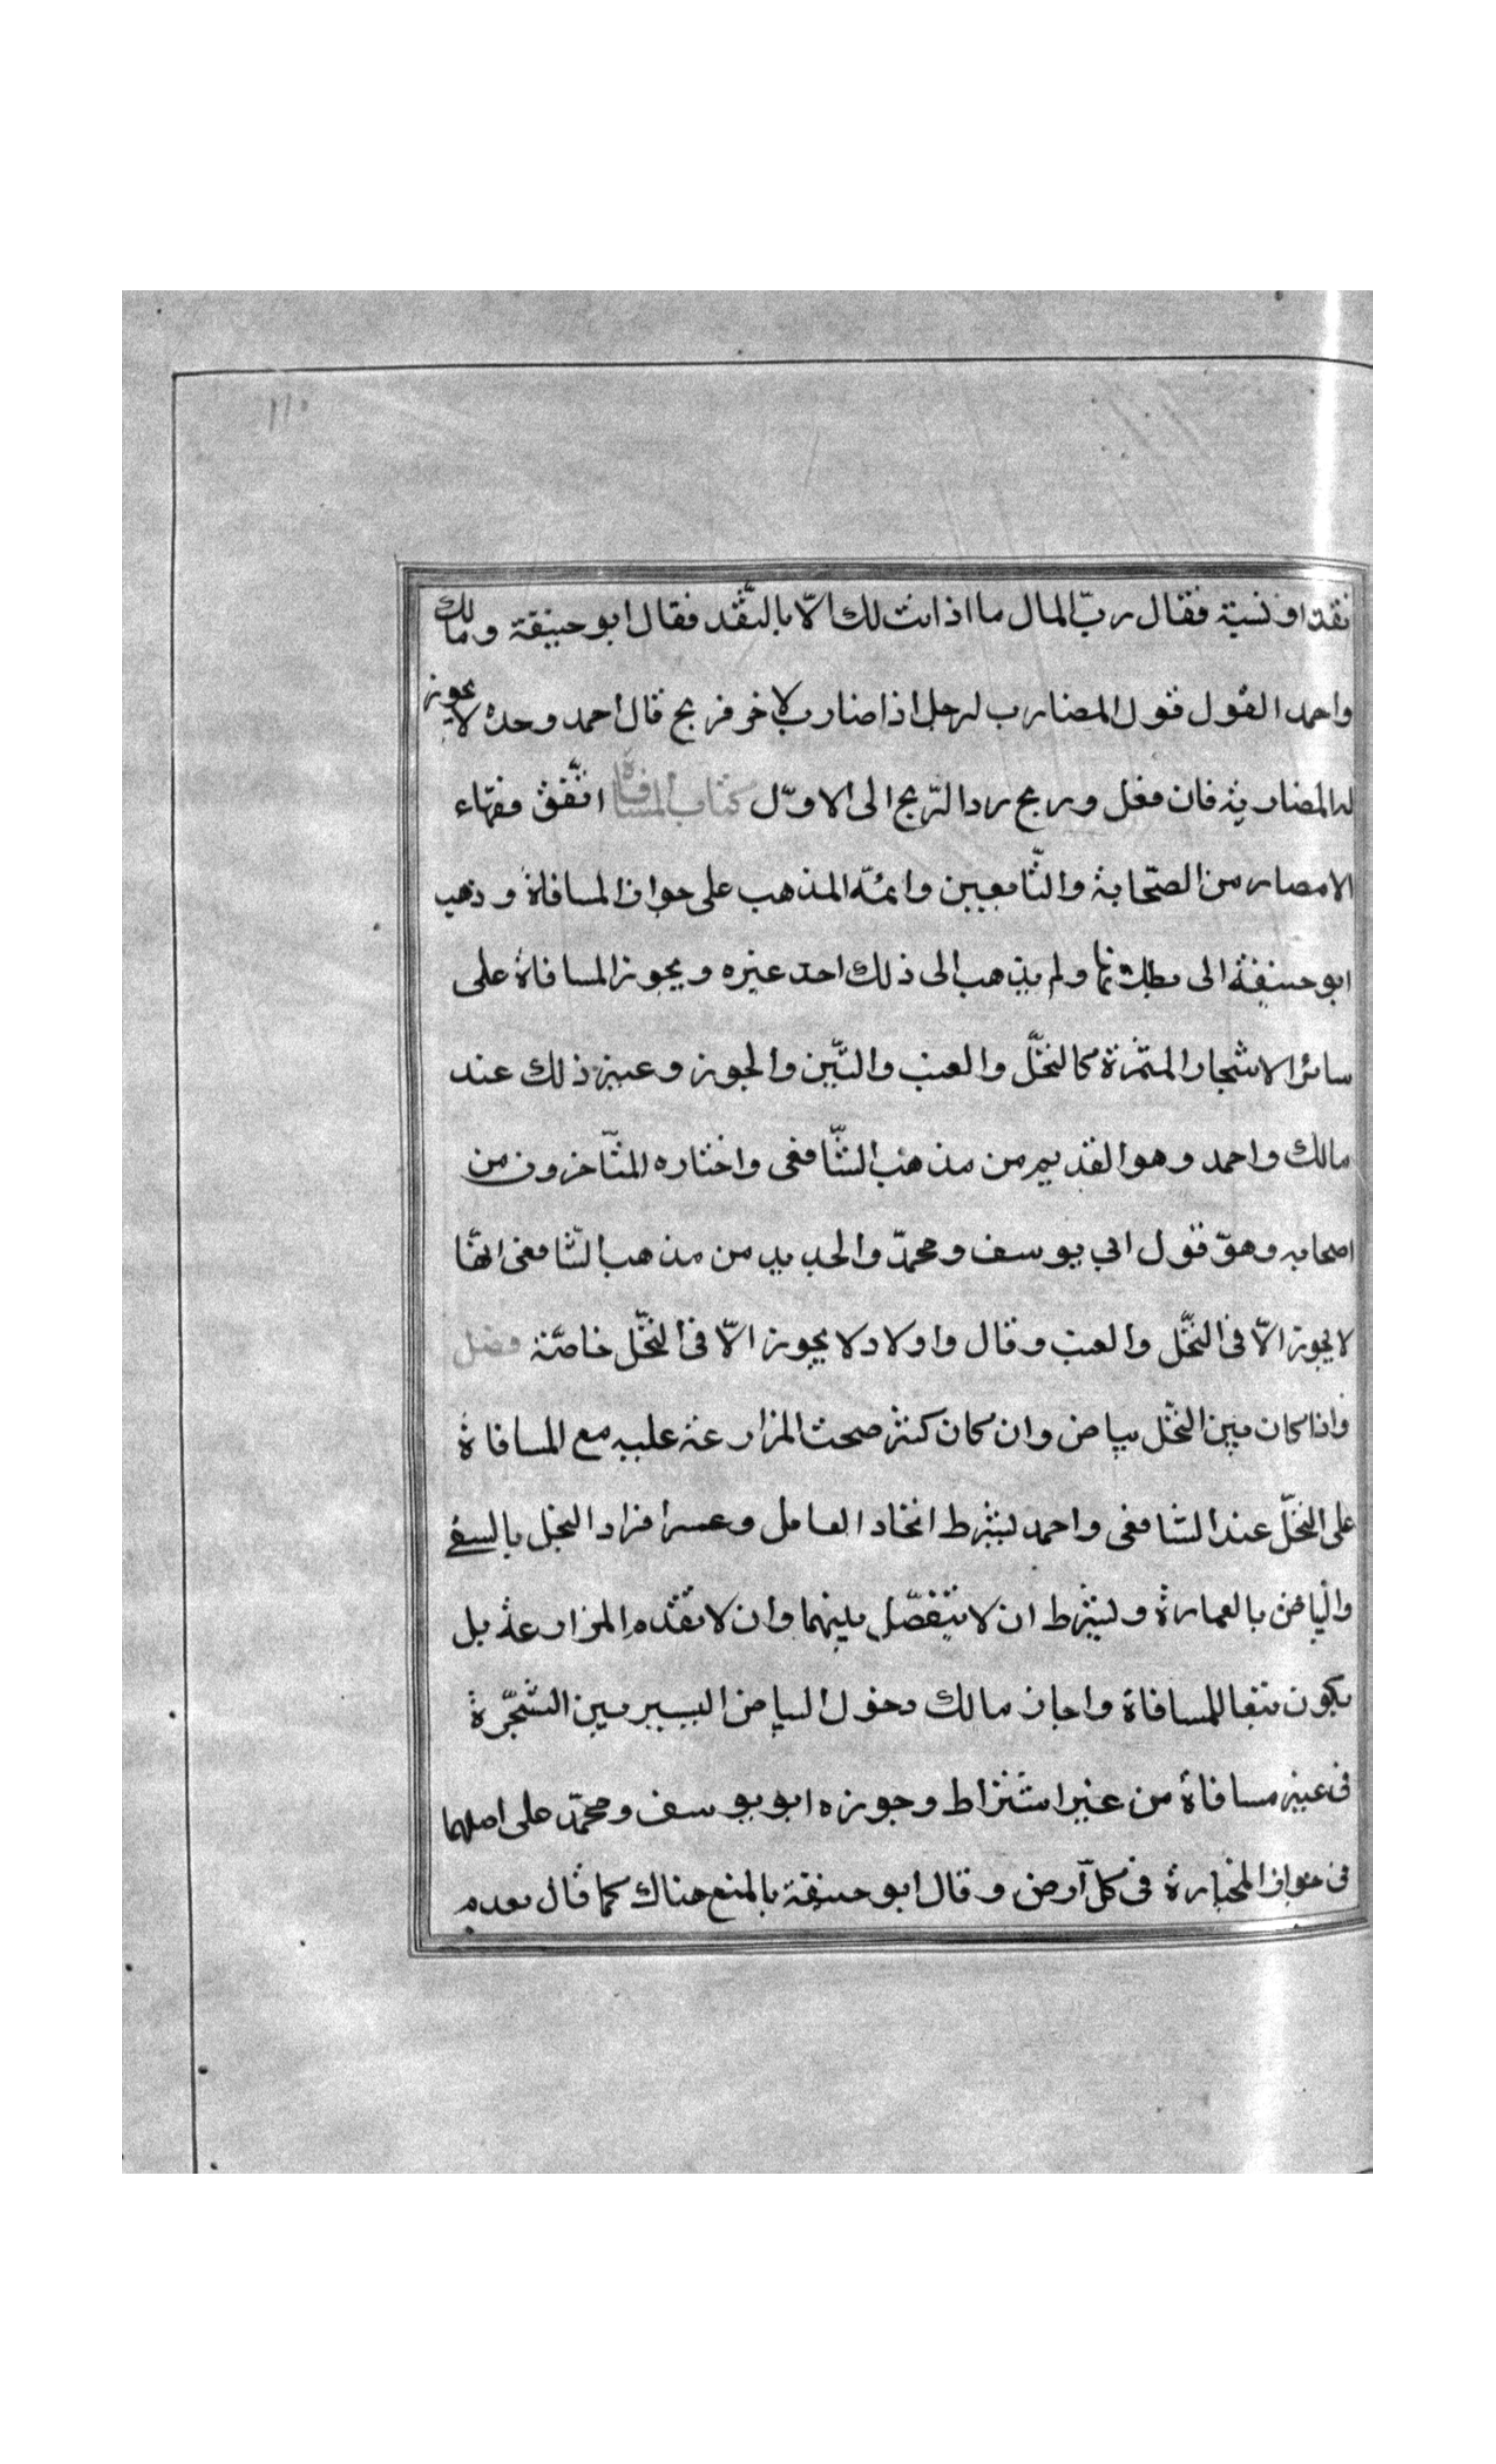 نقدا او نسية فقال رب المال ما اذنت لك الا بالنقد فقال ابو حنيفة ومالك
واحمد القول قول المضارب لرجل اذا ضارب لاخر فربح قال احمد وحده لا يجوز
له المضاربة فان فعل وربح رد الربح الى الاول كتاب المساقاة اتفق فقهاء
الامصار من الصحابة والتابعين وائمة المذهب على جواز المساقاة وذهب
ابو حنيفة الى بطلانها ولم يذهب الى ذلك احد غيره ويجوز المساقاة على
سائر الاشجار المثمرة كالنخل والعنب والتين والجوز وغير ذلك عند
مالك واحمد وهو القديم من مذهب الشافعى واختاره المتاخرون من
اصحابه وهو قول ابي يوسف ومحمد والجديد من مذهب الشافعى انها
لا يجوز الا فى النخل والعنب وقال داود لا يجوز الا فى النخل خاصة فصل
واذا كان بين النخل بياض وان كان كثر صحت المزارعة عليه مع المساقاة
على النخل عند الشافعى واحمد بشرط اتحاد العامل وعسر افراد النخل بالسقى
والبياض بالعمارة وبشرط ان لا يفصل بينهما وان لا تقدم المزارعة بل
يكون تبعا للمساقاة واجاز مالك دخول البياض اليسير بين الشجرة
فى غير مساقاة من غير اشتراط وجوزه ابو يوسف ومحمد على اصلهما
فى جواز المخابرة فى كل ارض وقال ابو حنيفة بالمنع هناك كما قال بعدم